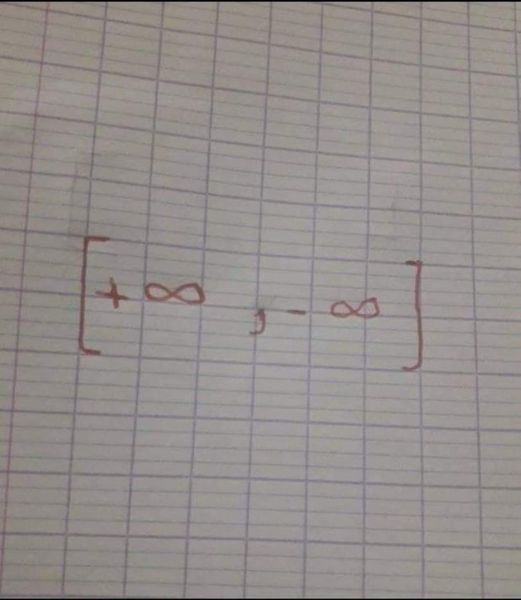 [+∞ , -∞]